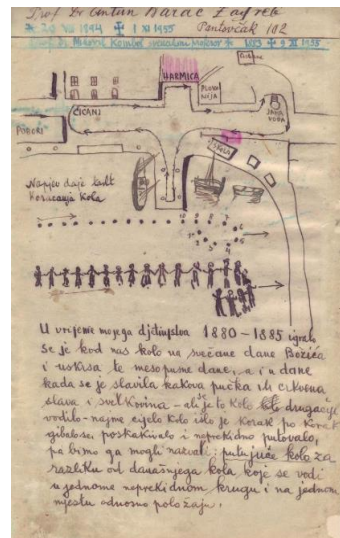 Prof. Dr Antun Barac Zagreb
* 20 VIII 1894 ✝ 1 XI 1955 Pantovčak 102
Prof. Dr. Mihovil Kombol 1883 ✝ 9 XI 1955
HARMICA
PLOVANIJA
ČIGANJ
PODORI
JADR. VODA
ŠKOLA
Napjev daje takt
Koracanja Kola
U vrijeme mojega djetinjstva 1880-1885 igralo
se je kod nas kolo na svečane dane Božića
i uskrsa te mesopusne dane, a i u dane
kada se je slavila kakova pučka ili crkvena
slava i svetkovina - ali se je to Kolo bilo drugačije
vodilo - najme cijelo Kolo išlo je korak po korak
gibalo se, poskakivalo i neprekidno putovalo,
pa bi mo ga mogli nazvati: putujuće kolo za
razliku od današnjega kola koje se vodi
u jednome neprekidnom krugu i na jednom
mjestu odnosno položaju.